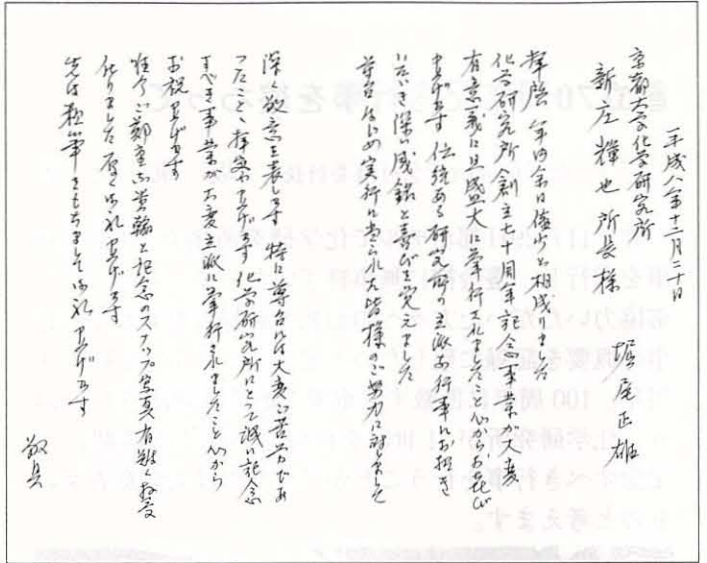 平成八年十二月二十日
京都大学化学研究所
新庄輝也 所長様
堀尾正雄
拝啓 年内余日僅少と相成りました
化学研究所創立七十周年記念事業が大変
有意義に且盛大に挙行されましたこと心からお慶び
申上げます 伝統ある研究所の立派な行事にお招き
いただき深い感銘と喜びを覚えました
尊台はじめ実行に当られた皆様の御努力に対しまして
深い敬意を表します 特に尊台には大変御苦労であ
ったことと拝察申上げます 化学研究所にとって誠に記念
すべき事業が立派に挙行されましたこと心から
お祝申上げます
御鄭重な御芳翰と記念のスナップ写真有難く拝受
仕りました 厚く御礼申上げます
先は乱筆をもちまして御礼申上げます
敬具